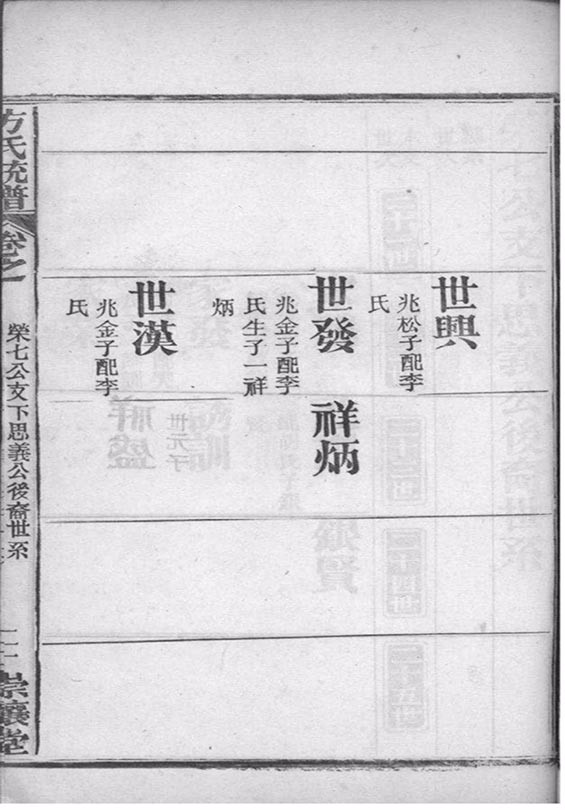 世興
兆松子配李
氏
世發
兆金子配李
氏生子一祥
炳
祥炳
世漢
兆金子配李
氏
方氏統譜
卷之一
榮七公支下思義公後裔世系